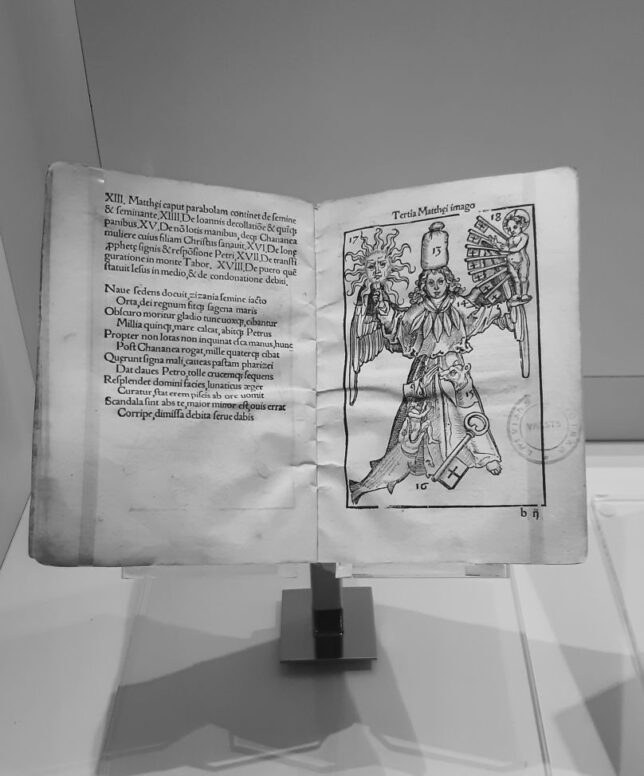 XIII. Matthęi caput parabolam continet de semine
& seminante. XIIII. De Ioannis decollatiõe & quiqꝫ
panibus. XV. De nõ lotis manibus, deqꝫ Chananea
muliere cuius filiam Christus sanauit. XVI. De Ionę
ꝓphetę signis & respõsione Petri. XVII. De transfi
guratione in monte Tabor. XVIII. De puero quē
statuit Iesus in medio, & de condonatione debiti.
Naue sedens docuit, zizania semine iacto
Orta, dei regnum fitqꝫ sagena maris
Obscuro moritur gladio tunc cibantur
Millia quinqꝫ, mare calcat, abitqꝫ Petrus
Propter non lotas non inquinat esca manus, hunc
Post Chananea rogat, mille quaterqꝫ cibat
Querunt signa mali, caueas pastam pharizei
Dat claues Petro, tolle crucemqꝫ sequens
Resplendet domini facies, lunaticus æger
Curatur, stat erem piscis ab ore uomit
Scandala sint abs te, maior minor est, ouis errat
Corripe, dimissa debita serue dabis
Tertia Matthęi imago
17
18
13
14
15
16
b ij